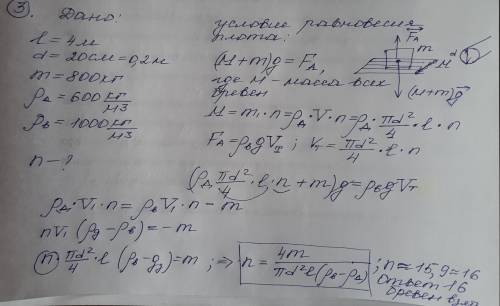 ③ Дано:
l = 4 м
d = 20см = 0,2м
m = 800кг
ρд = 600 кг/м3
ρв = 1000 кг/м3
n - ?
условие равновесия
плота:
(M+m)g = FA,
где M - масса всех
бревен
FA
m
d
M
(M+m)g
M = m₁·n = ρд·V·n = ρд·πd²/4·l·n
FA = ρвgVт ; Vт = πd²/4·l·n
(ρд πd²/4·l·n + m)g = ρвgVт
ρд·V₁·n = ρвV₁·n - m
nV₁(ρд - ρв) = -m
n·πd²/4·l(ρв - ρд) = m ; ⇒ n = 4m/πd²l(ρв-ρд) ; n ≈ 15,9 ≈ 16
Ответ 16
бревен